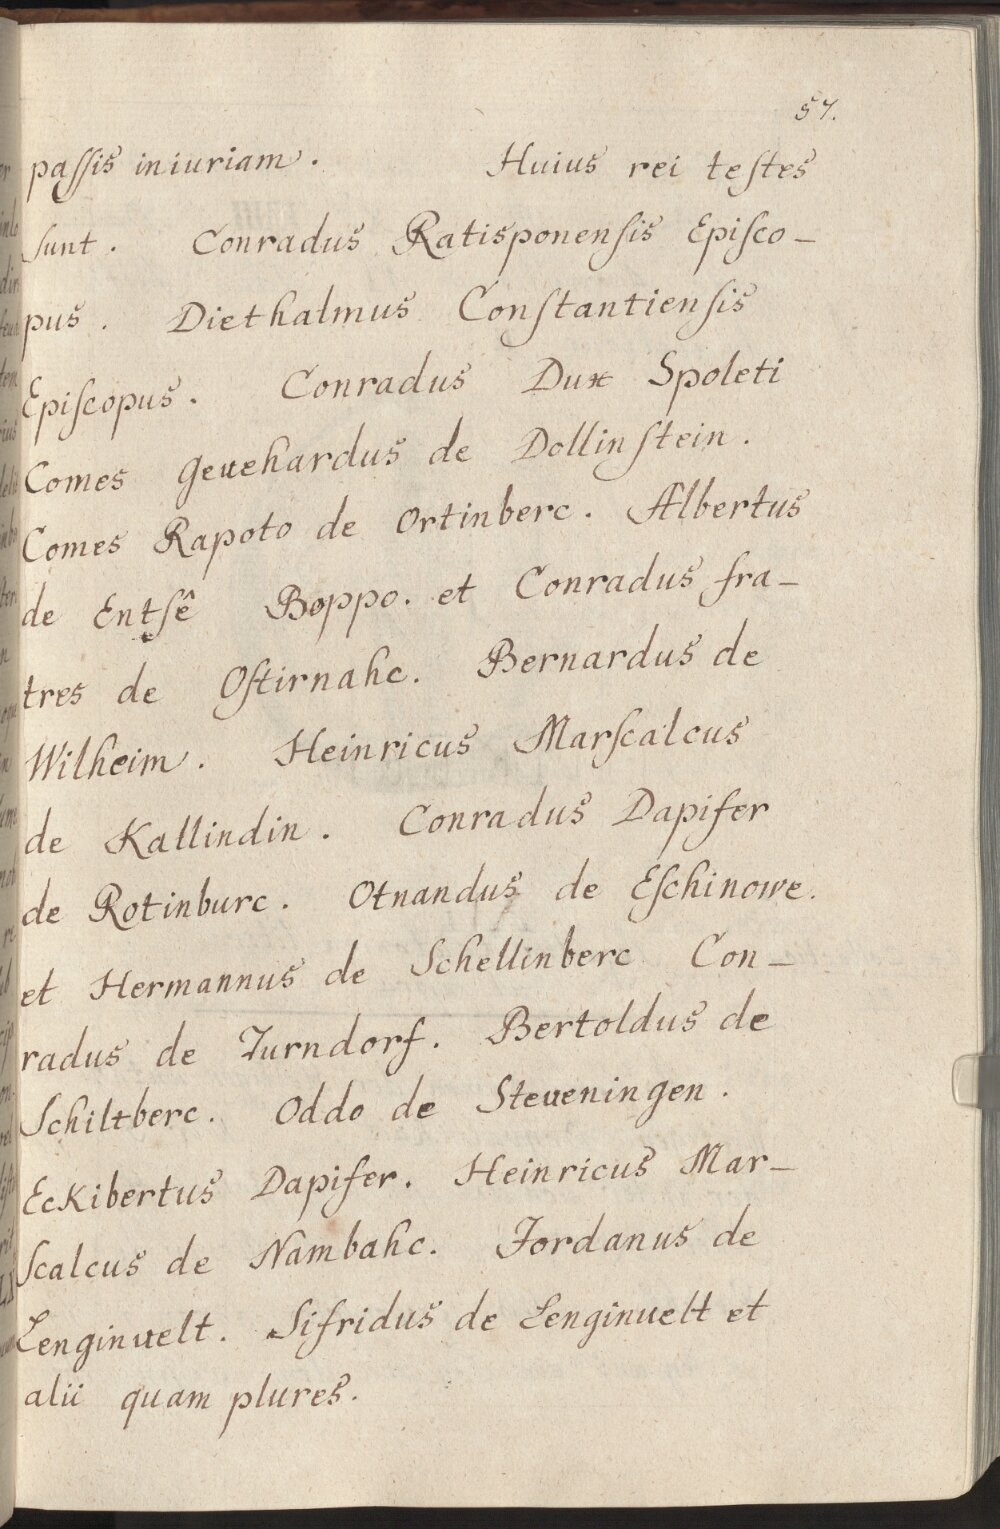 57.
paſſis iniuriam. Huius rei teſtes
ſunt. Conradus Ratisponenſis Epiſco-
pus. Diethalmus Conſtantienſis
Epiſcopus. Conradus Dux Spoleti
Comes Geuehardus de Dollinſtein.
Comes Rapoto de Ortinberc. Albertus
de Entſê Boppo. et Conradus fra-
tres de Oſtirnahc. Bernardus de
Wilheim. Heinricus Marſcalcus
de Kallindin. Conradus Dapifer
de Rotinburc. Otnandus de Eſchinowe.
et Hermannus de Schellinberc Con-
radus de Turndorf. Bertoldus de
Schiltberc. Oddo de Steueningen.
Eckibertus Dapifer. Heinricus Mar-
ſcalcus de Nambahc. Jordanus de
Lenginuelt. Sifridus de Lenginuelt et
alii quam plures.